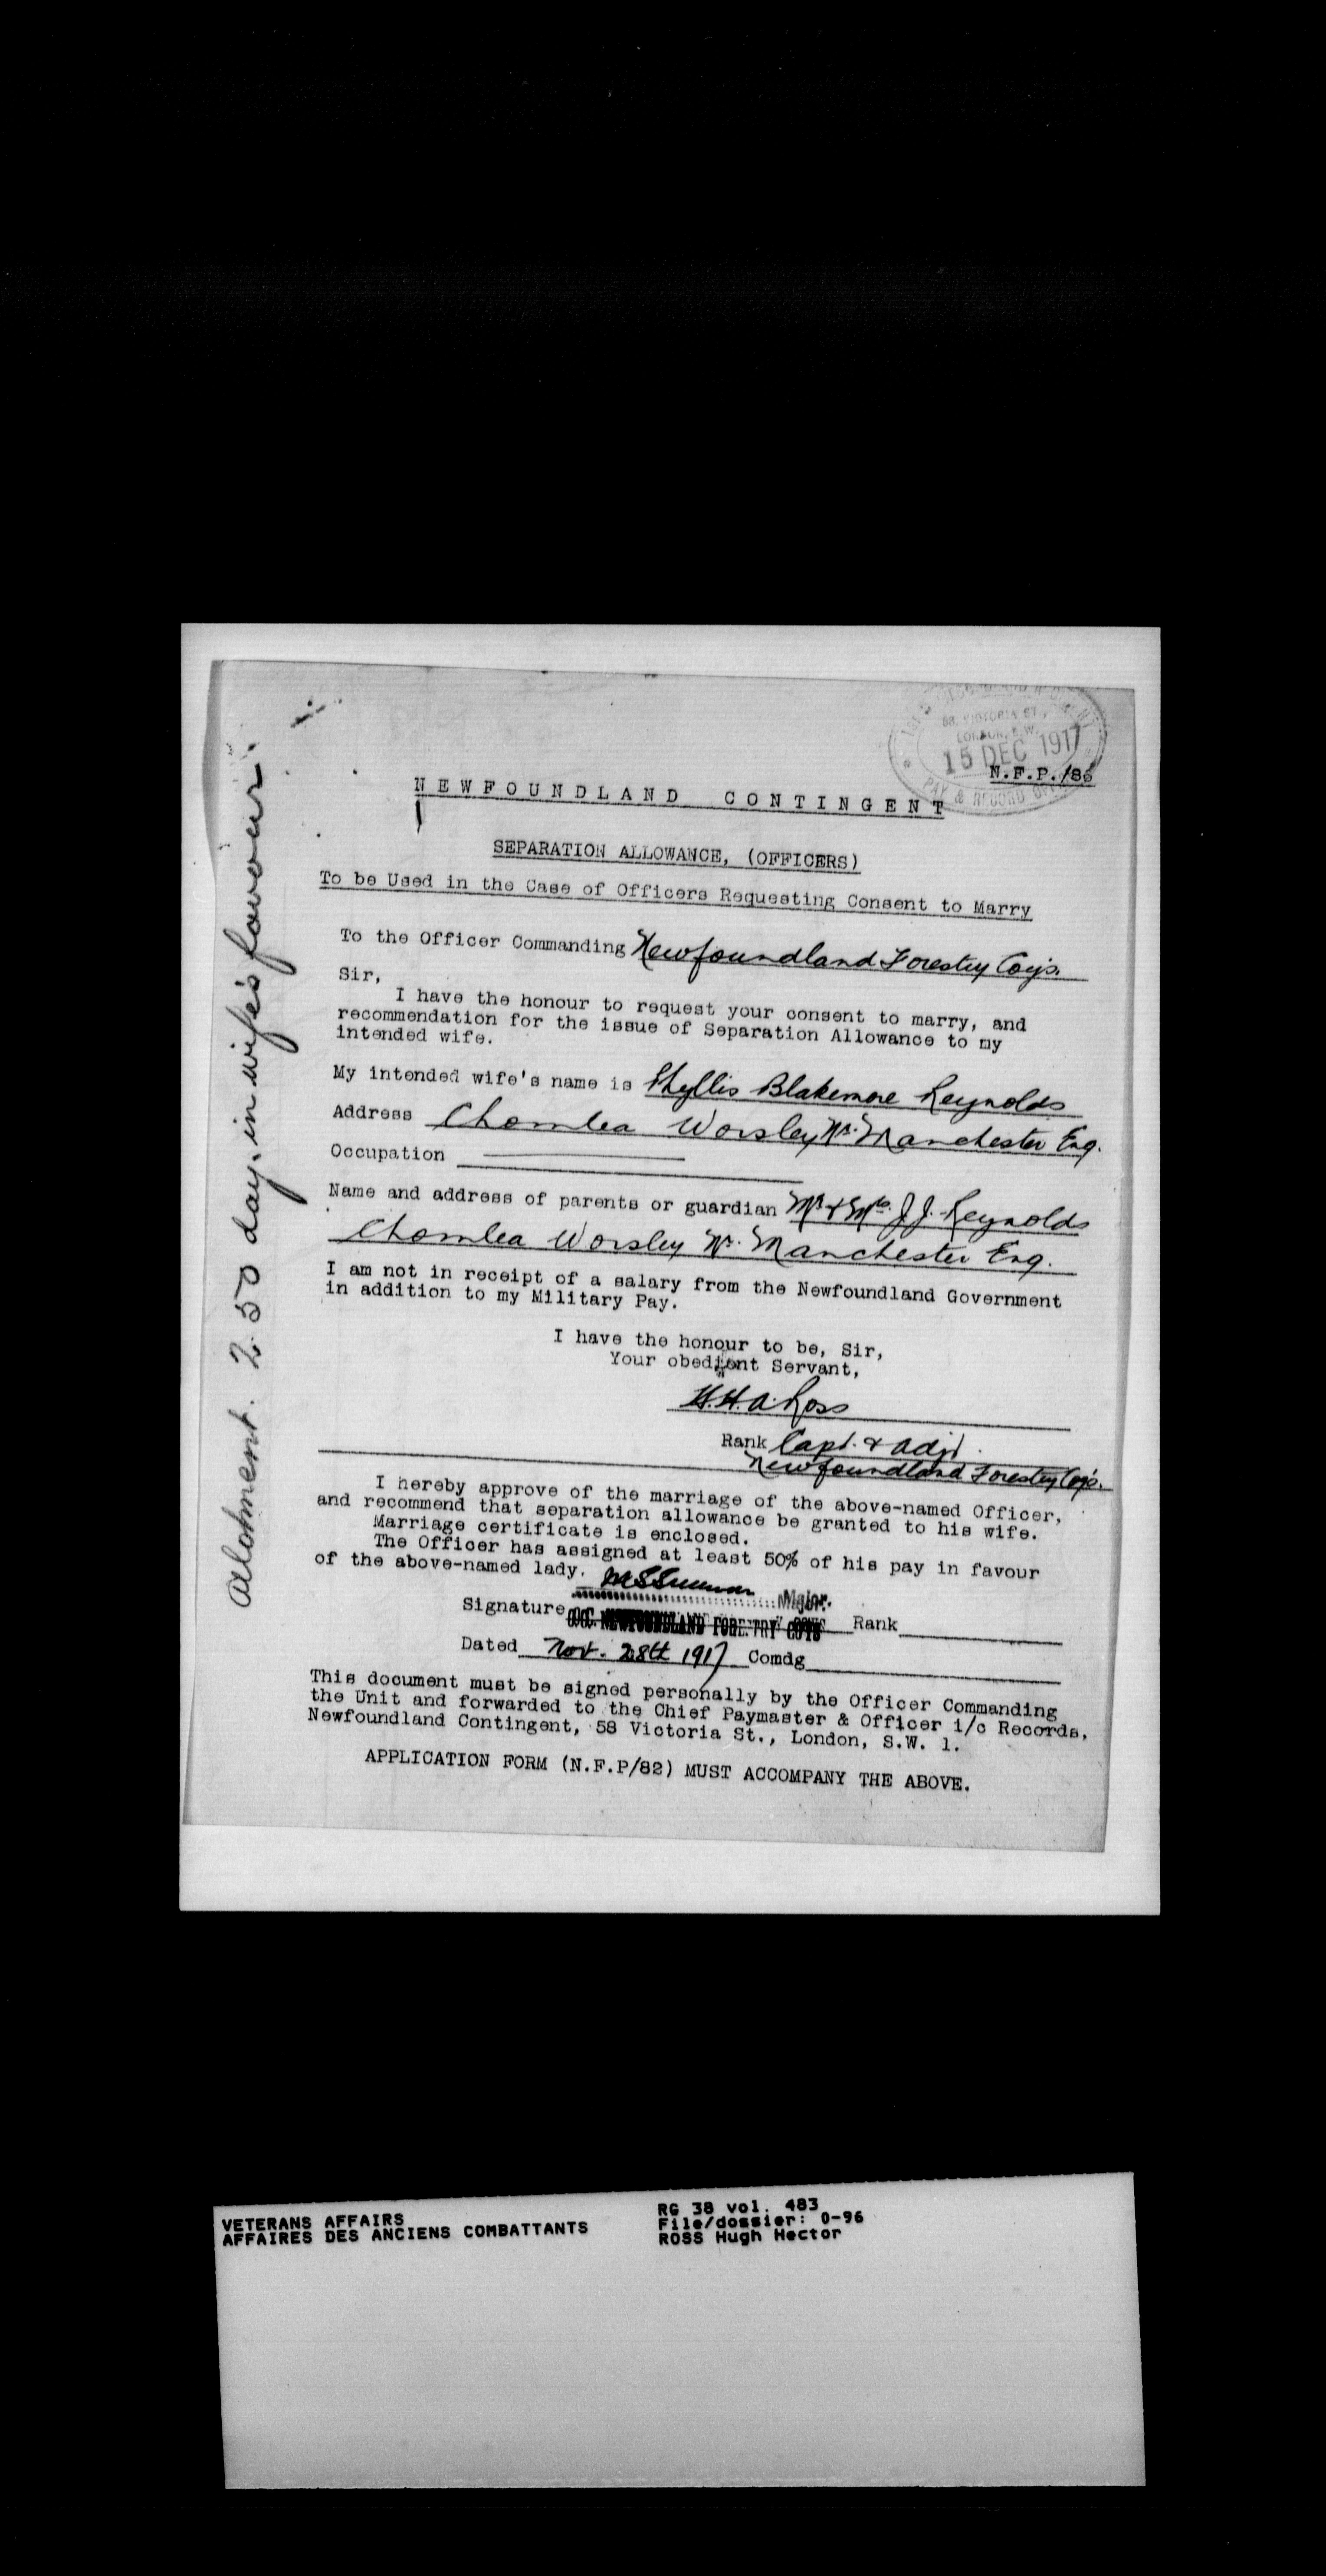 58, VICTORIA ST.,
LONDON, S.W.
15 DEC 1917
PAY & RECORD OFFICE
N.F.P./85
NEWFOUNDLAND CONTINGENT
SEPARATION ALLOWANCE, (OFFICERS)
To be Used in the Case of Officers Requesting Consent to Marry
To the Officer Commanding Newfoundland Forestry Coy's.
Sir,
I have the honour to request your consent to marry, and
recommendation for the issue of Separation Allowance to my
intended wife.
My intended wife's name is Phyllis Blakemore Reynolds
Address Chomlea Worsley Nr. Manchester Eng.
Occupation
Name and address of parents or guardian Mr & Mrs. J J. Reynolds
Chomlea Worsley Nr. Manchester Eng.
I am not in receipt of a salary from the Newfoundland Government
in addition to my Military Pay.
I have the honour to be, Sir,
Your obedient Servant,
H.H.A. Ross
Rank Capt. & Adjt.
Newfoundland Forestry Coy's.
I hereby approve of the marriage of the above-named Officer,
and recommend that separation allowance be granted to his wife.
Marriage certificate is enclosed.
The Officer has assigned at least 50% of his pay in favour
of the above-named lady.
Major.
Signature O.C. NEWFOUNDLAND FORESTRY COYS Rank
Dated Nov. 28th 1917 Comdg
This document must be signed personally by the Officer Commanding
the Unit and forwarded to the Chief Paymaster & Officer i/c Records,
Newfoundland Contingent, 58 Victoria St., London, S.W. 1.
APPLICATION FORM (N.F.P/82) MUST ACCOMPANY THE ABOVE.
Alotment. 2.50 day. in wife's favour.
VETERANS AFFAIRS
AFFAIRES DES ANCIENS COMBATTANTS
RG 38 vol. 483
File/dossier: O-96
ROSS Hugh Hector